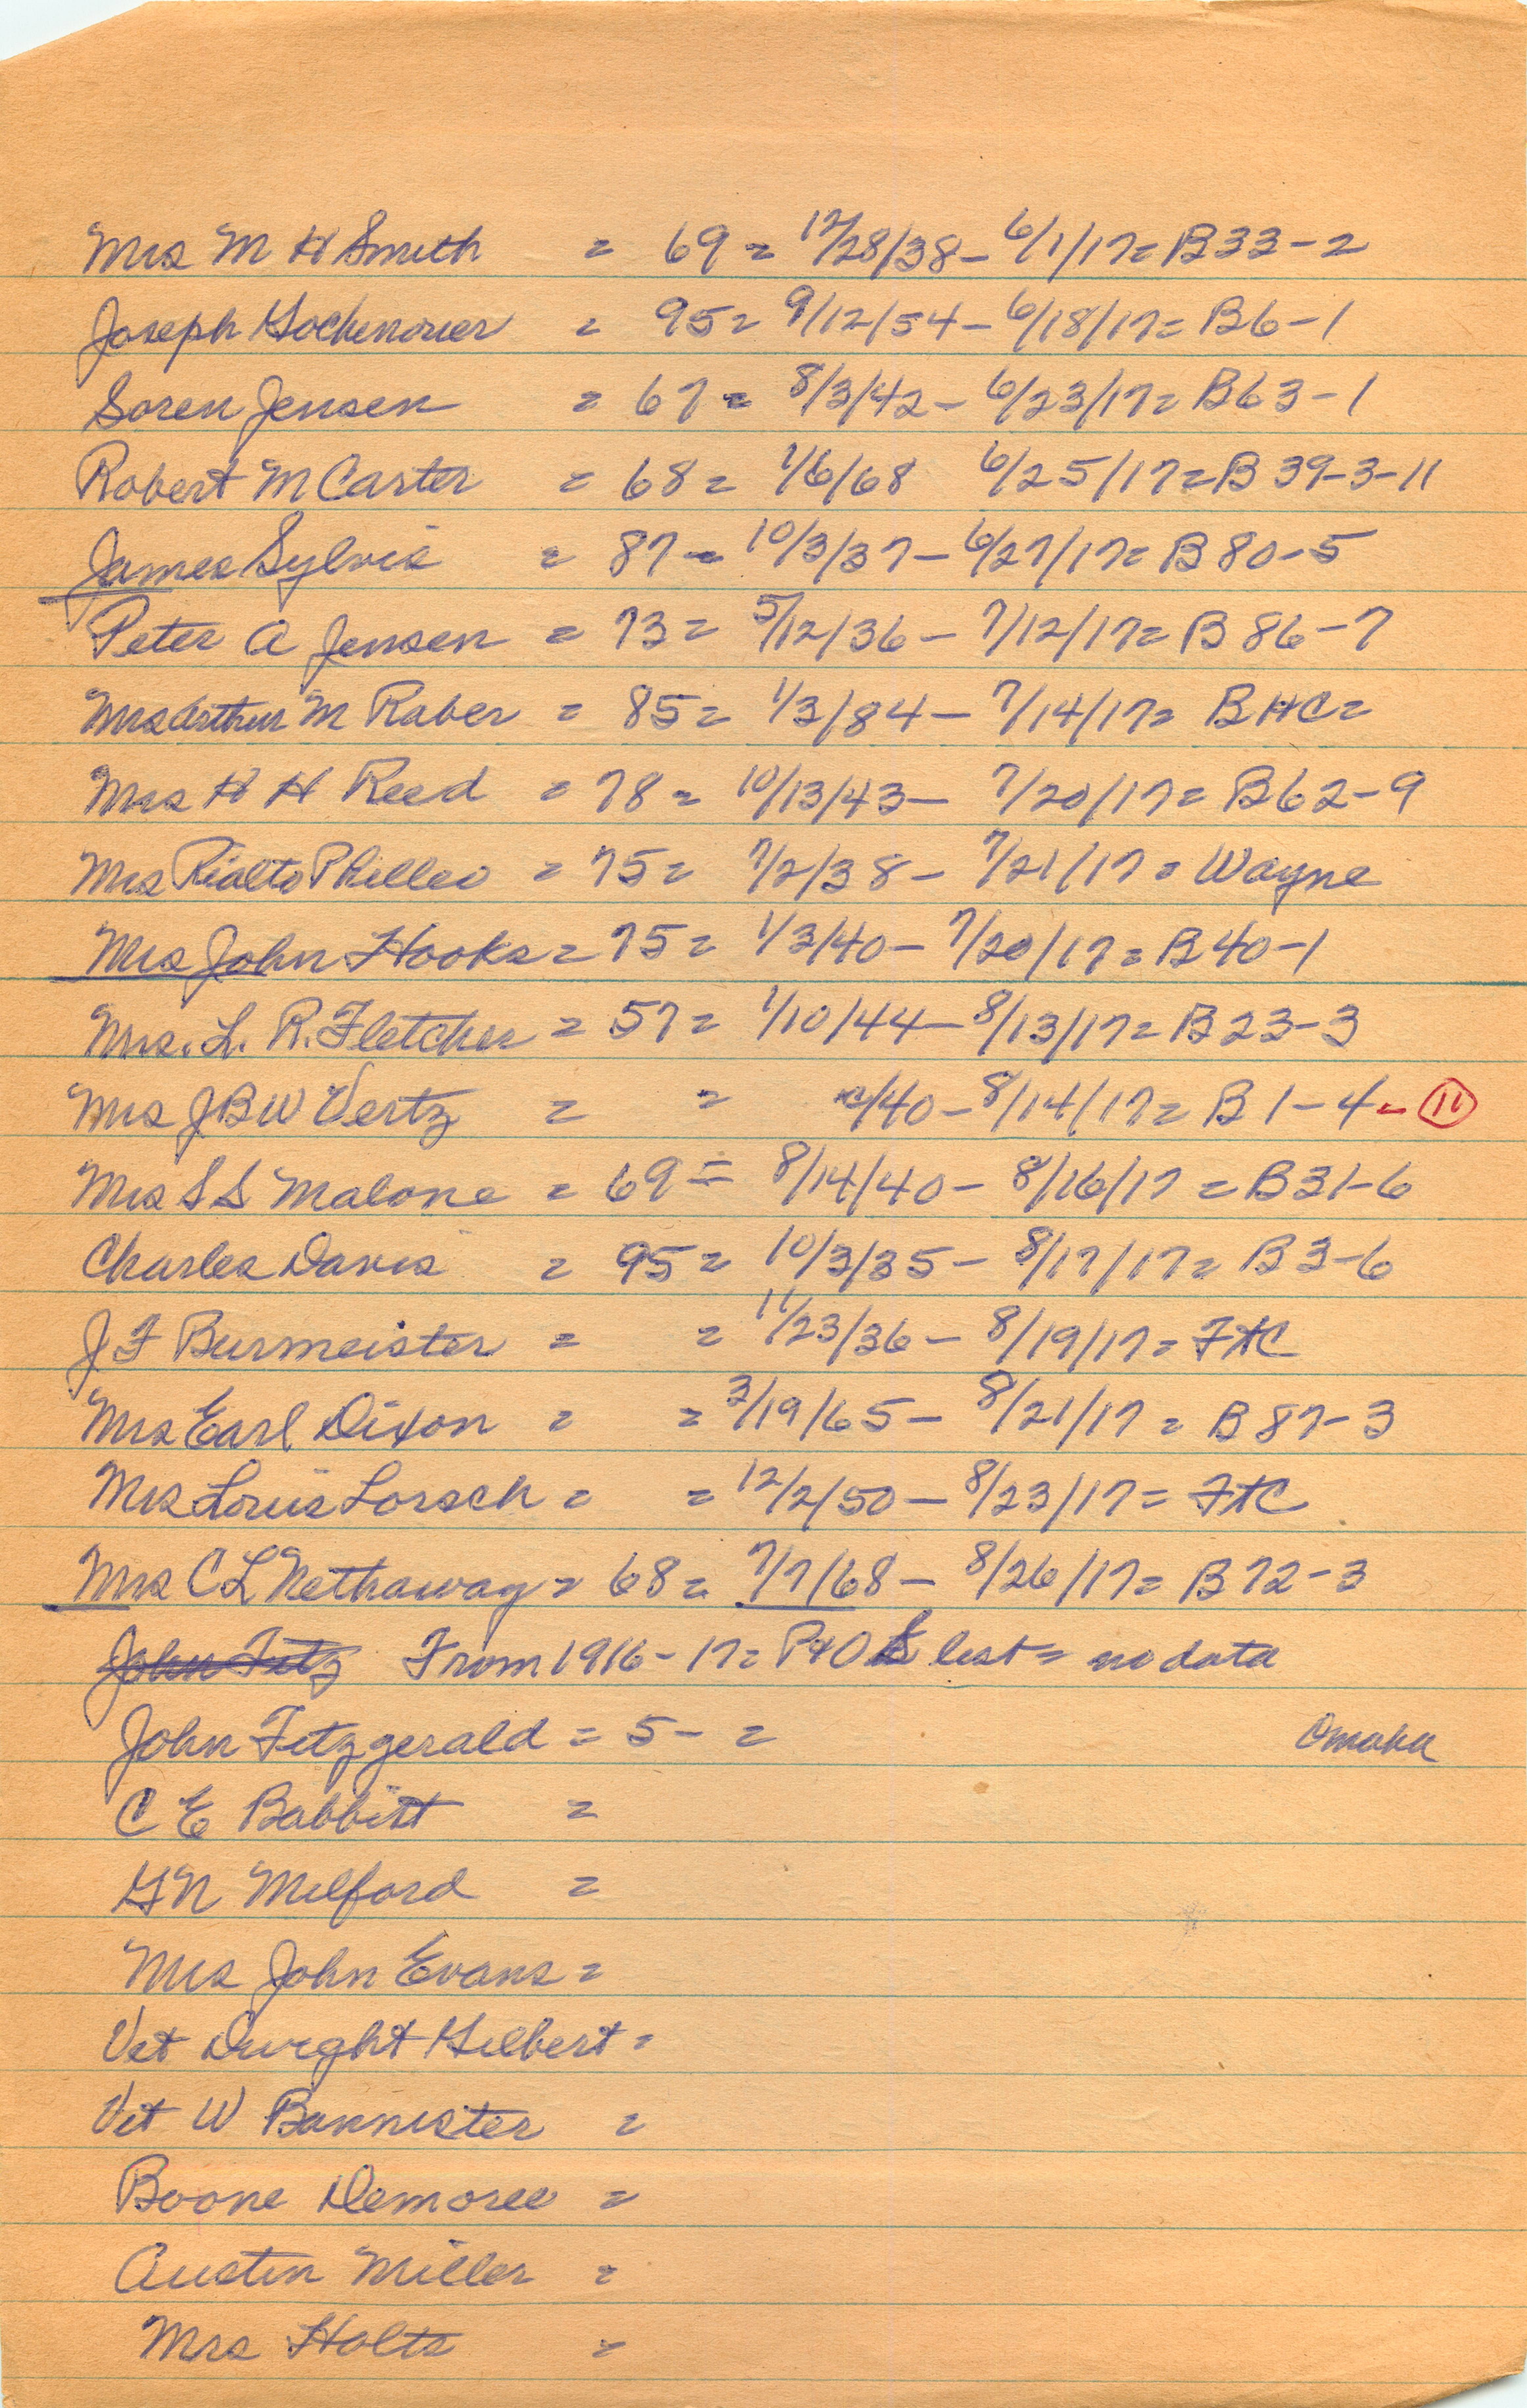 Mrs M H Smith = 69 = 12/28/38 - 6/1/17 = B33-2
Joseph Gochenouer = 95 = 9/12/54 - 6/18/17 = B6-1
Soren Jensen = 67 = 8/3/42 - 6/23/17 = B63-1
Robert M Carter = 68 = 1/6/68 6/25/17 = B 39-3-11
James Sylvis = 87 = 10/3/37 - 6/27/17 = B 80-5
Peter A Jensen = 73 = 5/12/36 - 7/12/17 = B 86-7
Mrs Arthur M Raber = 85 = 1/3/84 - 7/14/17 = BHC =
Mrs H H Reed = 78 = 10/13/43 - 7/20/17 = B62-9
Mrs Rialto Philleo = 75 = 7/2/38 - 7/21/17 = Wayne
Mrs John Hooks = 75 = 1/3/40 - 7/20/17 = B40-1
Mrs. L. R. Fletcher = 57 = 1/10/44 - 8/13/17 = B23-3
Mrs J B W Vertz = = /40 - 8/14/17 = B 1-4 - 11
Mrs S S Malone = 69 = 8/14/40 - 8/16/17 = B31-6
Charles Davis = 95 = 10/3/35 - 8/17/17 = B3-6
J F Burmeister = = 11/23/36 - 8/19/17 = FHC
Mrs Earl Dixon = = 3/19/65 - 8/21/17 = B 87-3
Mrs Louis Lorsch = = 12/2/50 - 8/23/17 = FHC
Mrs C L Nethaway = 68 = 7/7/68 - 8/26/17 = B72-3
John Fitz From 1916-17 = P40 list = no data
John Fitzgerald = 5- = Omaha
C E Babbitt =
G N Milford =
Mrs John Evans =
Vet Dwight Gilbert =
Vet W Bannister =
Boone Demoree =
Austin Miller =
Mrs Holts =